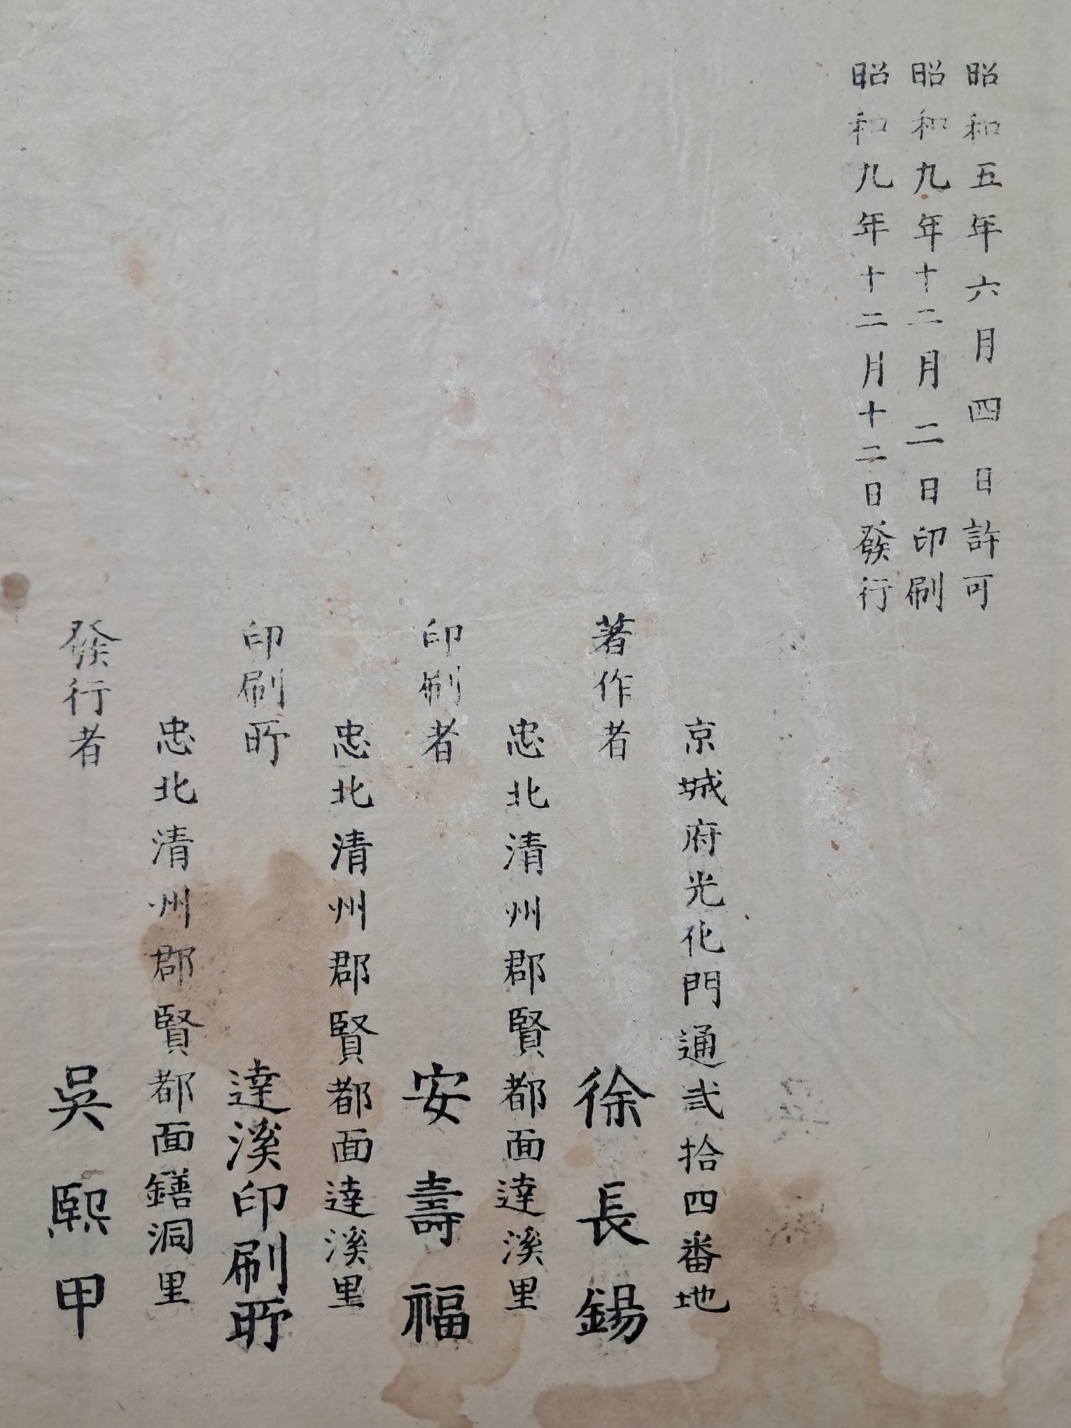 昭和五年六月四日許可
昭和九年十二月二日印刷
昭和九年十二月十二日發行
京城府光化門通弍拾四番地
著作者 徐長錫
忠北清州郡賢都面達溪里
印刷者 安壽福
忠北清州郡賢都面達溪里
印刷所 達溪印刷所
忠北清州郡賢都面鐥洞里
發行者 吳熙甲